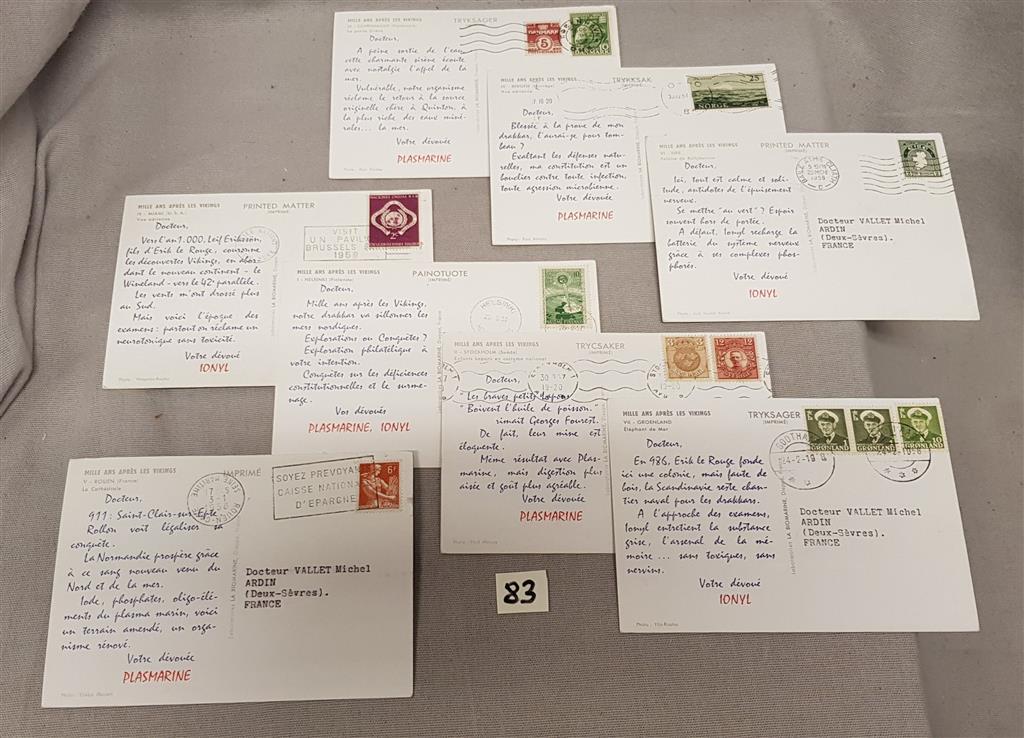 MILLE ANS APRÈS LES VIKINGS
TRYKSAGER
Docteur,
A peine sortie de l'eau,
cette charmante sirène écoute
avec nostalgie l'appel de la
mer.
Vulnérable, notre organisme
réclame le retour à la source
originelle chère à Quinton, à
la plus riche des eaux miné-
rales... la mer.
Votre dévouée
PLASMARINE
DANMARK
5
DANMARK
10
MILLE ANS APRÈS LES VIKINGS
TRYKKSAK
Vue aérienne
Docteur,
Blessée à la proue de mon
drakkar, l'aurai-je pour tom-
beau ?
Exaltant les défenses natu-
relles, ma constitution est un
bouclier contre toute infection,
toute agression microbienne.
Votre dévoué
PLASMARINE
25
NORGE
MILLE ANS APRÈS LES VIKINGS
PRINTED MATTER
(IMPRIMÉ)
Docteur,
Ici, tout est calme et soli-
tude, antidotes de l'épuisement
nerveux.
Se mettre "au vert" ? Espoir
souvent hors de portée.
A défaut, Ionyl recharge la
batterie du système nerveux
grâce à ses complexes phos-
phorés.
Votre dévoué
IONYL
Docteur VALLET Michel
ARDIN
(Deux-Sèvres).
FRANCE
MILLE ANS APRÈS LES VIKINGS
IX - MIAMI (U.S.A.)
Vue aérienne
PRINTED MATTER
(IMPRIMÉ)
Docteur,
Vers l'an 1.000, Leif Eriksson,
fils d'Erik le Rouge, couronne
les découvertes Vikings, en abor-
dant le nouveau continent - le
Wineland - vers le 42e parallèle.
Les vents m'ont drossé plus
au Sud.
Mais voici l'époque des
examens : partout on réclame un
neurotonique sans toxicité.
Votre dévoué
IONYL
VISIT
UN PAVILION
BRUSSELS
1958
MILLE ANS APRÈS LES VIKINGS
I - HELSINKI (Finlande)
PAINOTUOTE
(IMPRIMÉ)
Docteur,
Mille ans après les Vikings,
notre drakkar va sillonner les
mers nordiques.
Explorations ou Conquêtes ?
Exploration philatélique à
votre intention.
Conquêtes sur les déficiences
constitutionnelles et le surme-
nage.
Vos dévoués
PLASMARINE, IONYL
HELSINKI
10
MILLE ANS APRÈS LES VIKINGS
II - STOCKHOLM (Suède)
Enfants lapons en costume national
TRYCSAKER
(IMPRIMÉ)
Docteur,
"Les braves petits lapons
"Boivent l'huile de poisson."
rimait Georges Fourest.
De fait, leur mine est
éloquente.
Même résultat avec Plas-
marine, mais digestion plus
aisée et goût plus agréable.
Votre dévouée
PLASMARINE
19-20
3
12
12
MILLE ANS APRÈS LES VIKINGS
VII - GROENLAND
Éléphant de Mer
TRYKSAGER
(IMPRIMÉ)
Docteur,
En 986, Erik le Rouge fonde
ici une colonie, mais faute de
bois, la Scandinavie reste chan-
tier naval pour les drakkars.
A l'approche des examens,
Ionyl entretient la substance
grise, l'arsenal de la mé-
moire... sans toxiques, sans
nervins.
Votre dévoué
IONYL
GRØNLAND
GRØNLAND
GRØNLAND
Docteur VALLET Michel
ARDIN
(Deux-Sèvres).
FRANCE
MILLE ANS APRÈS LES VIKINGS
V - ROUEN (France)
La Cathédrale
IMPRIMÉ
Docteur,
911 : Saint-Clair-sur-Epte.
Rollon voit légaliser sa
conquête.
La Normandie prospère grâce
à ce sang nouveau venu du
Nord et de la mer.
Iode, phosphates, oligo-élé-
ments du plasma marin, voici
un terrain amendé, un orga-
nisme rénové.
Votre dévouée
PLASMARINE
SOYEZ PREVOYAN
CAISSE NATIONA
D'EPARGNE
6F
Docteur VALLET Michel
ARDIN
(Deux-Sèvres).
FRANCE
83